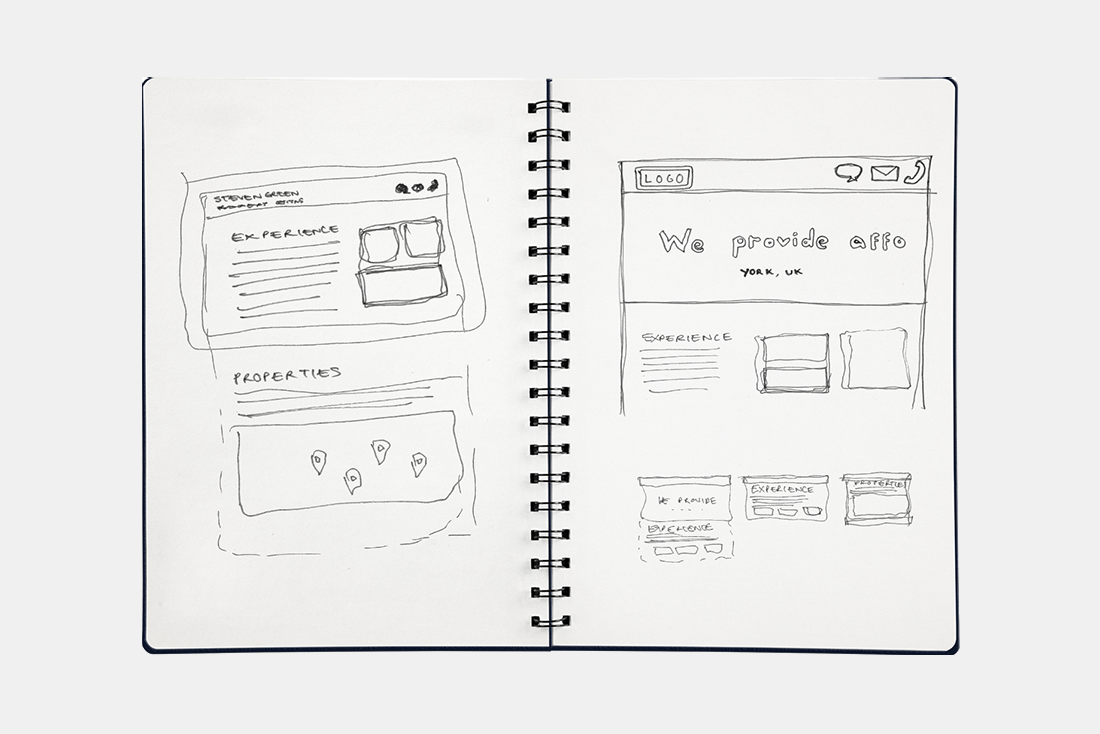 STEVEN GREEN
EXPERIENCE
PROPERTIES
LOGO
We provide affo
YORK, UK
EXPERIENCE
WE PROVIDE
EXPERIENCE
EXPERIENCE
PROPERTIES